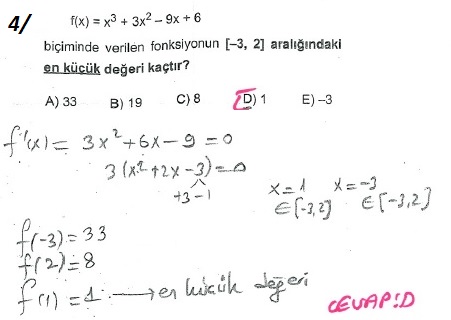 4/ f(x) = x³ + 3x² – 9x + 6
biçiminde verilen fonksiyonun [–3, 2] aralığındaki
en küçük değeri kaçtır?
A) 33 B) 19 C) 8 D) 1 E) –3
f'(x) = 3x² + 6x – 9 = 0
3(x² + 2x – 3) = 0
+3 –1
x = 1 x = –3
∈ [–3, 2] ∈ [–3, 2]
f(–3) = 33
f(2) = 8
f(1) = 1 → en küçük değeri
CEVAP: D